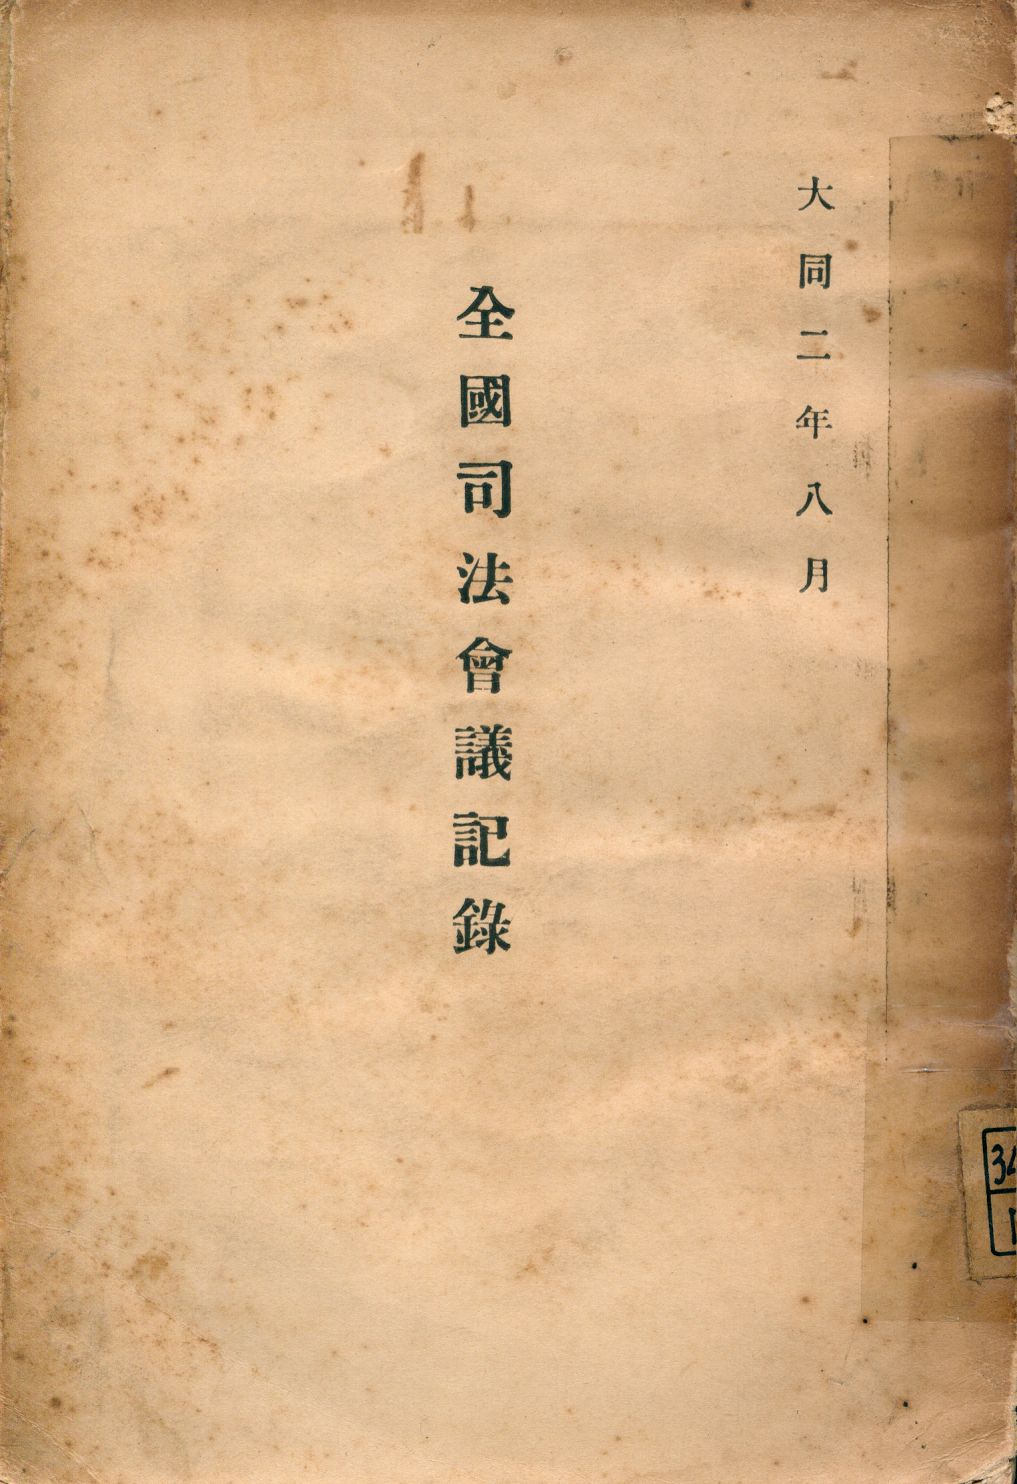 大同二年八月
全國司法會議記錄
34
1